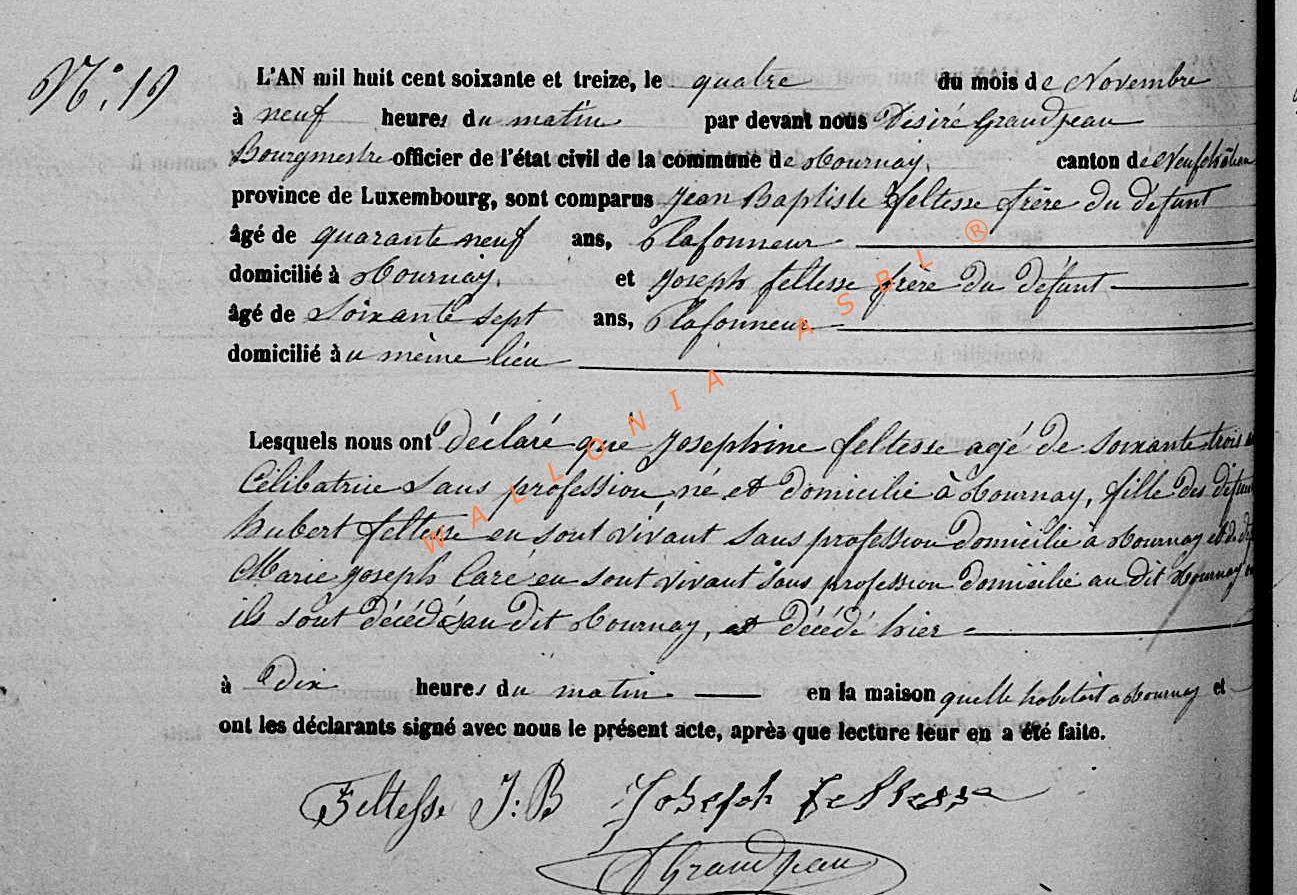 N°. 19
L'AN mil huit cent soixante et treize, le quatre du mois de Novembre
à neuf heures du matin par devant nous Désiré Grandjean
Bourgmestre officier de l'état civil de la commune de Tournay, canton de Neufchâteau
province de Luxembourg, sont comparus Jean Baptiste Feltesse frère du défunt
âgé de quarante neuf ans, Plafonneur
domicilié à Tournay. et Joseph feltesse frère du défunt
âgé de Soixante sept ans, Plafonneur
domicilié au même lieu
Lesquels nous ont Déclaré que Josephine feltesse agé de soixante trois
Célibatrice sans profession, né et domicilié à Tournay, fille des défun
hubert feltesse en sont vivant sans profession domicilié à Tournay et de
Marie Joseph Caré en sont vivant sans profession domicilié au dit Tournay
ils sont décédés au dit Tournay, et décédé hier
à Dix heures du matin en la maison quelle habitait a Tournay et
ont les déclarants signé avec nous le présent acte, après que lecture leur en a été faite.
Feltesse J:B Joseph Feltesse
DGrandjean
WALLONIA ASBL ®